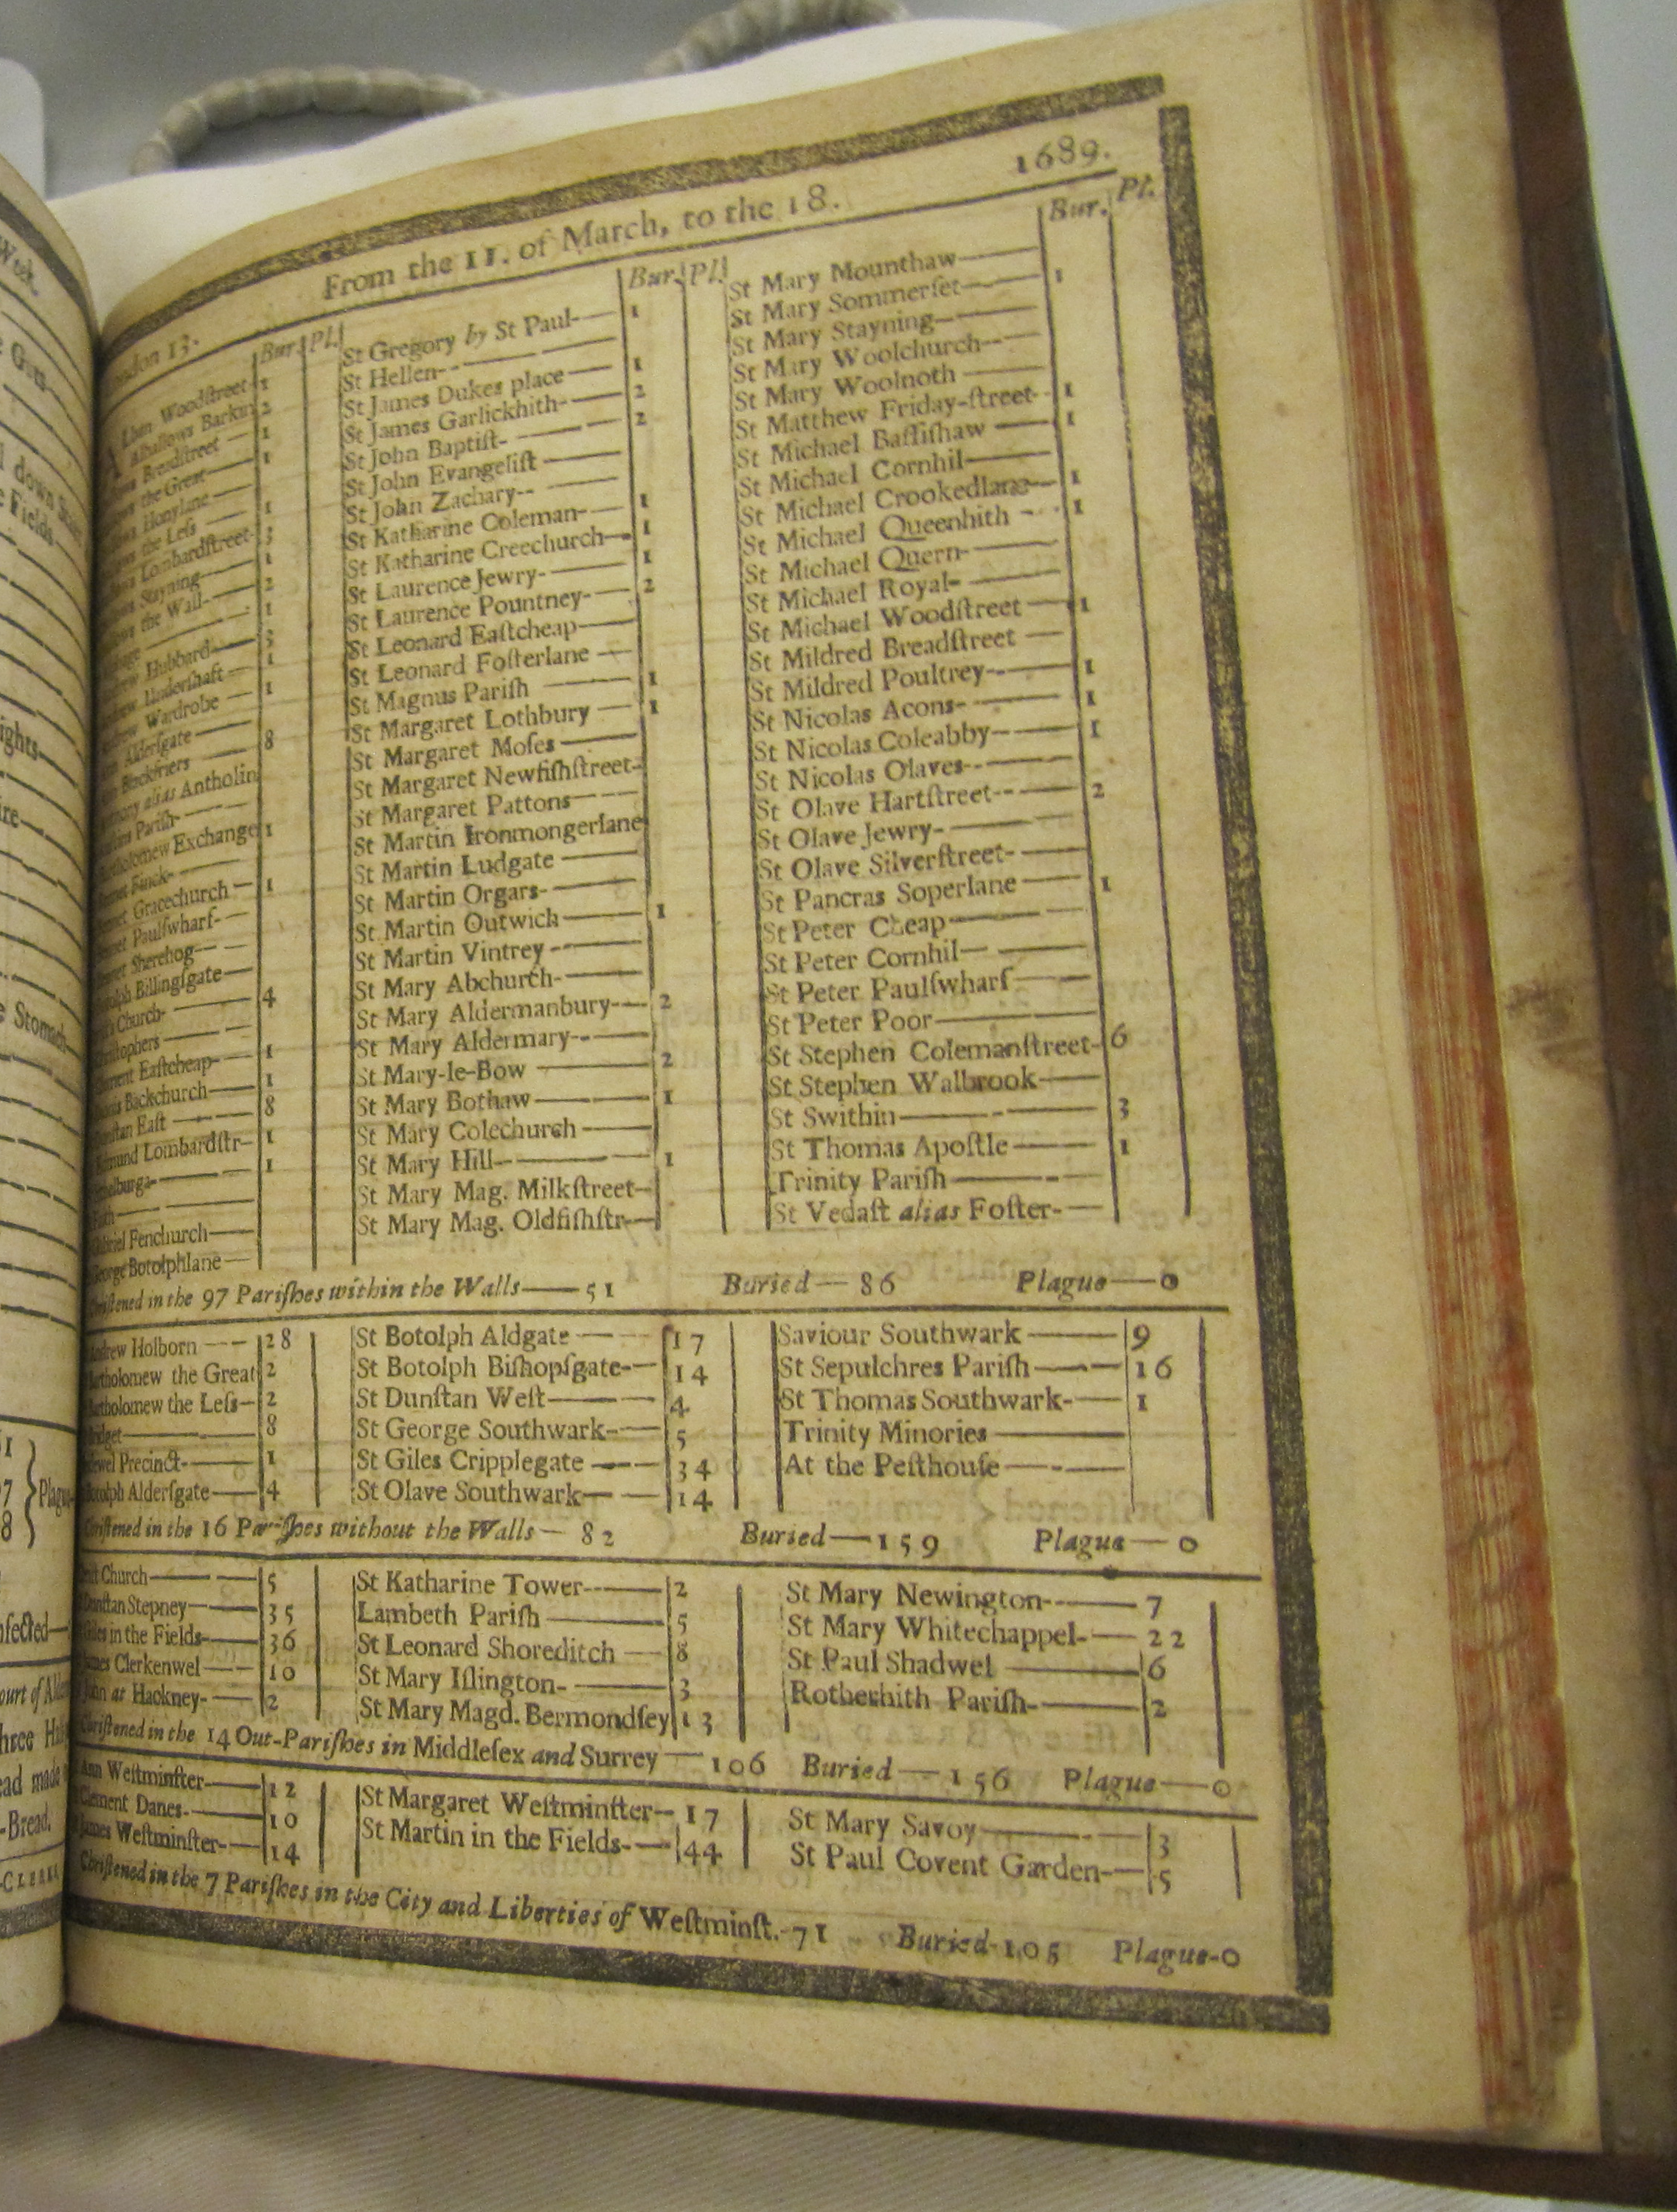 From the 11. of March, to the 18. 1689.
Bur. Pl.
Woodstreet 1
Alhallows Barkin 2
Breadstreet — 1
the Great — 1
Honylane —
the Less — 1
Lombardstreet- 3
Stayning — 1
the Wall — 2
1
Hubbard — 3
Undershaft — 1
Wardrobe — 1
Aldersgate —
Blackfriers — 8
alias Antholin
Parish-
Exchange 1
Finck-
Gracechurch — 1
Paulswharf-
Sherehog-
Billingsgate —
Church- 4
Eastcheap — 1
Backchurch — 1
East — 8
Lombardstr- 1
1
Fenchurch —
George Botolphlane —
Bur. Pl.
St Gregory by St Paul- 1
St Hellen-
St James Dukes place — 1
St James Garlickhith- 2
St John Baptist- 2
St John Evangelist —
St John Zachary-
St Katharine Coleman- 1
St Katharine Creechurch- 1
St Laurence Jewry- 1
St Laurence Pountney- 2
St Leonard Eastcheap —
St Leonard Fosterlane —
St Magnus Parish — 1
St Margaret Lothbury — 1
St Margaret Moses —
St Margaret Newfishstreet-
St Margaret Pattons —
St Martin Ironmongerlane
St Martin Ludgate —
St Martin Orgars-
St Martin Outwich — 1
St Martin Vintrey -
St Mary Abchurch-
St Mary Aldermanbury- 2
St Mary Aldermary-
St Mary-le-Bow — 2
St Mary Bothaw — 1
St Mary Colechurch —
St Mary Hill- 1
St Mary Mag. Milkstreet-
St Mary Mag. Oldfishstr-
Bur. Pl.
St Mary Mounthaw —
St Mary Sommerset- 1
St Mary Stayning-
St Mary Woolchurch-
St Mary Woolnoth —
St Matthew Friday-street- 1
St Michael Bassishaw — 1
St Michael Cornhil —
St Michael Crookedlane — 1
St Michael Queenhith - 1
St Michael Quern-
St Michael Royal-
St Michael Woodstreet — 1
St Mildred Breadstreet —
St Mildred Poultrey- 1
St Nicolas Acons- 1
St Nicolas Coleabby- 1
St Nicolas Olaves-
St Olave Hartstreet- 2
St Olave Jewry-
St Olave Silverstreet-
St Pancras Soperlane — 1
St Peter Cheap —
St Peter Cornhil —
St Peter Paulswharf —
St Peter Poor —
St Stephen Colemanstreet- 6
St Stephen Walbrook —
St Swithin — 3
St Thomas Apostle — 1
Trinity Parish —
St Vedast alias Foster-
Christened in the 97 Parishes within the Walls — 51 Buried — 86 Plague — 0
Andrew Holborn — 28
Bartholomew the Great 2
Bartholomew the Less — 2
Bridget — 8
Precinct- 1
Botolph Aldersgate — 4
St Botolph Aldgate — 17
St Botolph Bishopsgate- 14
St Dunstan West — 4
St George Southwark- 5
St Giles Cripplegate — 34
St Olave Southwark — 14
Saviour Southwark — 9
St Sepulchres Parish — 16
St Thomas Southwark- 1
Trinity Minories —
At the Pesthouse —
Christened in the 16 Parishes without the Walls — 82 Buried — 159 Plague — 0
Church — 5
Dunstan Stepney — 35
Giles in the Fields- 36
James Clerkenwel — 10
John at Hackney- 2
St Katharine Tower- 2
Lambeth Parish — 5
St Leonard Shoreditch — 8
St Mary Islington- 3
St Mary Magd. Bermondsey 13
St Mary Newington- 7
St Mary Whitechappel- 22
St Paul Shadwel — 6
Rotherhith Parish- 2
Christened in the 14 Out-Parishes in Middlesex and Surrey — 106 Buried — 156 Plague — 0
Ann Westminster — 12
Clement Danes- 10
James Westminster- 14
St Margaret Westminster- 17
St Martin in the Fields- 44
St Mary Savoy — 3
St Paul Covent Garden- 5
Christened in the 7 Parishes in the City and Liberties of Westminst.- 71 Buried- 105 Plague-0